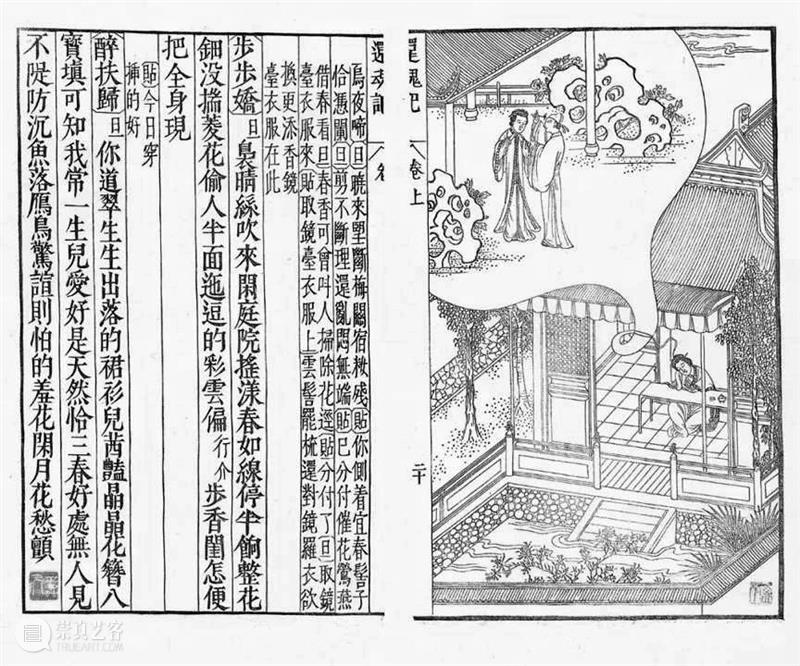 還魂記
卷上
二十
還魂記
卷
烏夜啼旦曉來望斷梅關宿粧殘貼你側着宜春髻子
恰憑闌旦剪不斷理還亂悶無端貼已分付催花鶯燕
借春看旦春香可曾叫人掃除花逕貼分付了旦取鏡
臺衣服來貼取鏡臺衣服上雲髻罷梳還對鏡羅衣欲
換更添香鏡
臺衣服在此
歩歩嬌旦裊晴絲吹來閑庭院搖漾春如線停半餉整花
鈿没揣菱花偷人半面迤逗的彩雲偏行介歩香閨怎便
把全身現
貼今日穿
插的好
醉扶歸旦你道翠生生出落的裙衫兒茜豔晶晶花簪八
寳填可知我常一生兒愛好是天然恰三春好處無人見
不隄防沉魚落鴈鳥驚諠則怕的羞花閉月花愁顫
崇真艺客